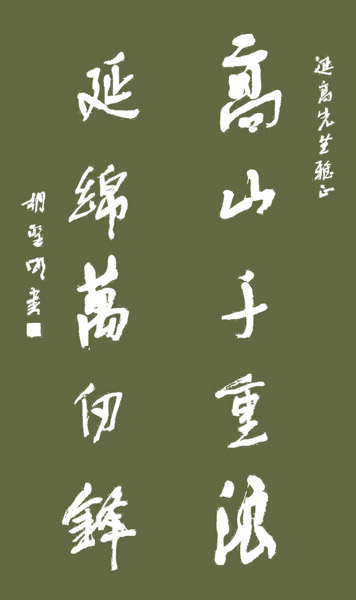 延高先生雅正
高山千重浪
延綿萬仞鋒
胡 明書